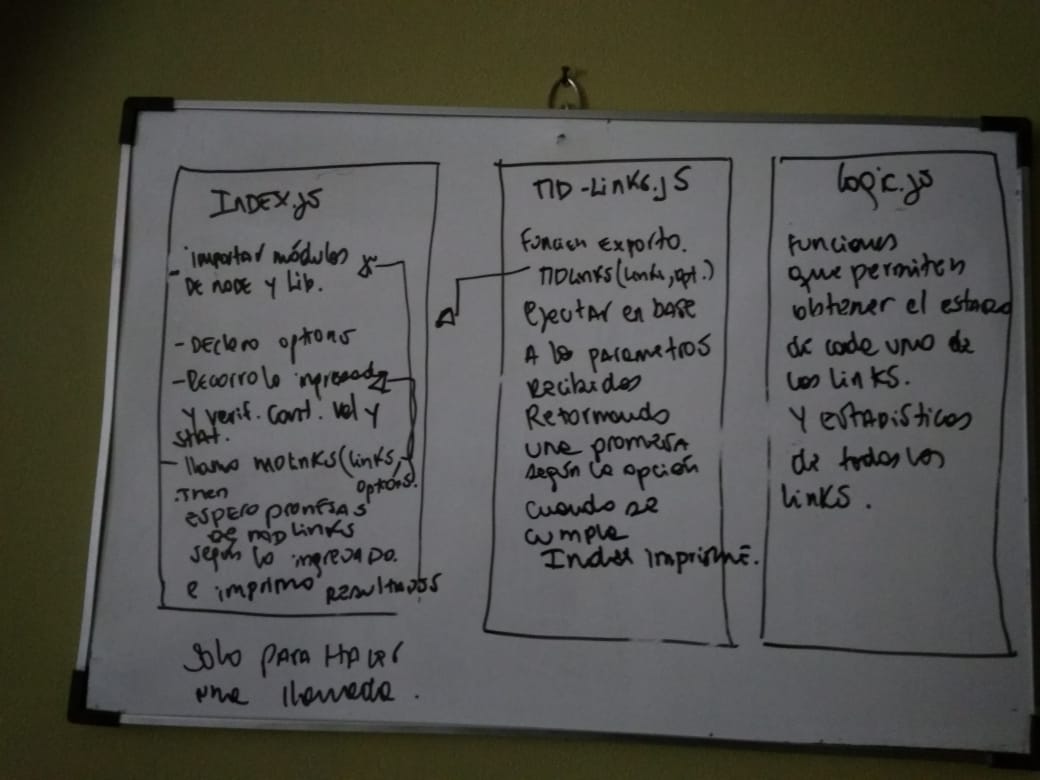 INDEX.js
- importar módulos
DE NODE y Lib.
- DEclaro options
- Recorro lo ingresado
y verif. cant. val y
stat.
- llamo mdLnks(links,
options.
.Then
ESPERO PROMESAS
DE MD LINKS
según lo ingresado.
e imprimo RESULTADOS
Solo PARA HACER
une llamada.
MD-Links.jS
Función Exporto.
MDLINKS(links, opt.)
Ejecutar en base
A lo parametros
Recibidos
Retornando
une promesa
según la opción
cuando se
cumple
Index imprime.
Logic.js
Funciones
que permiten
obtener el estado
de cada uno de
los links.
Y ESTADísticas
de todos los
links.